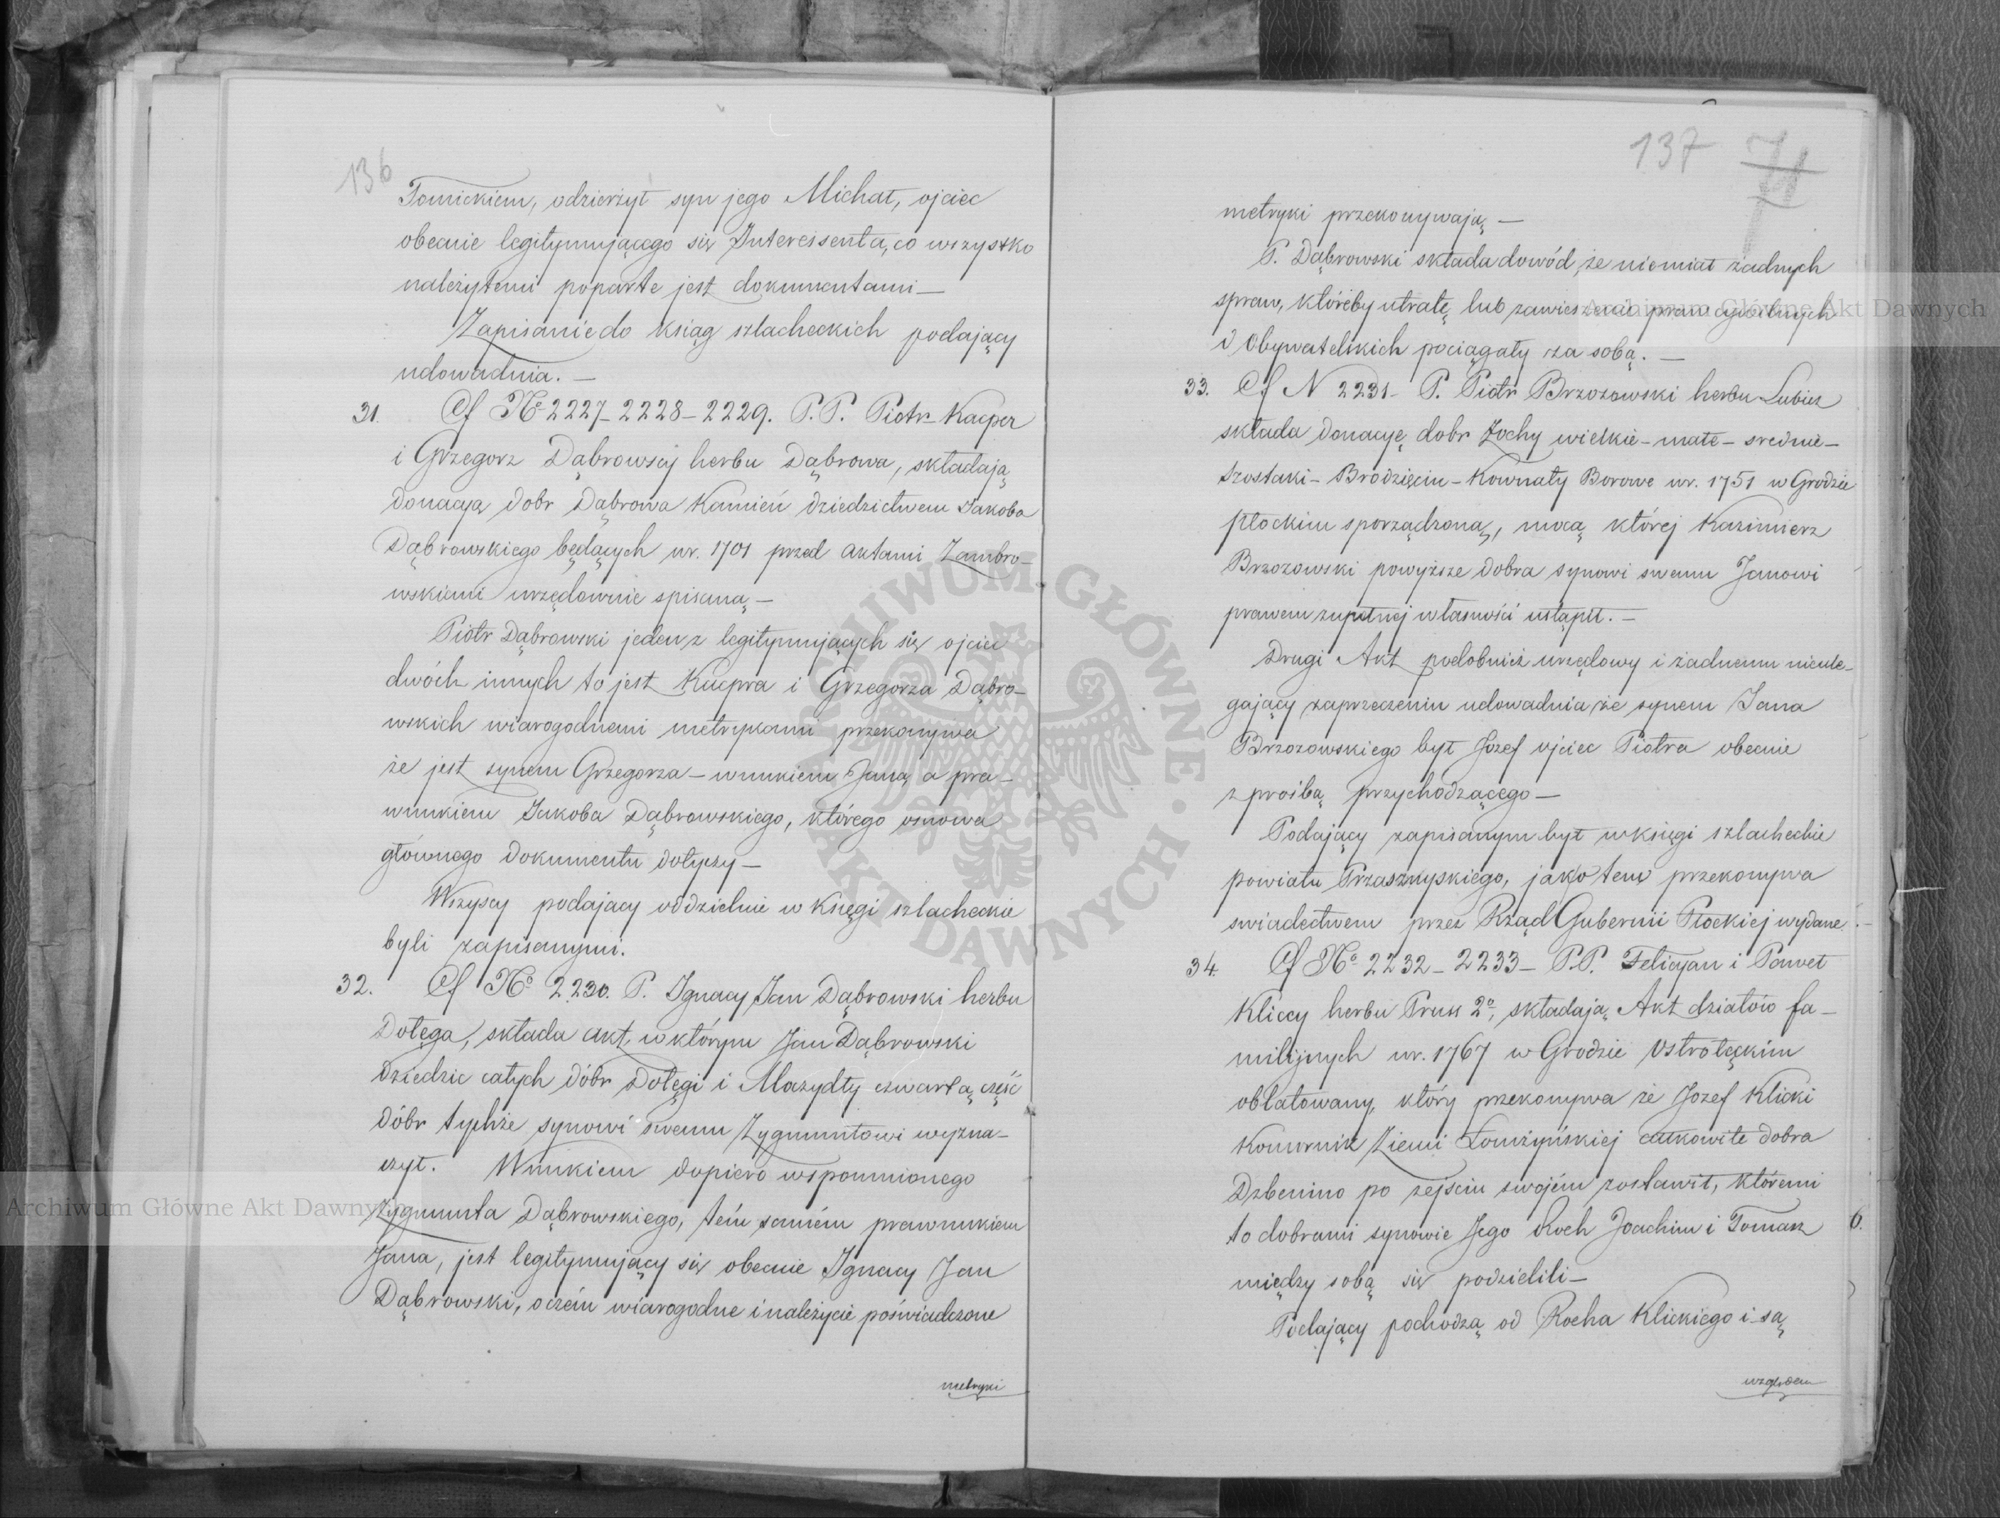 136
Tomickiem, odzierżył syn jego Michał, ojciec
obecnie legitymującego się Interessenta, co wszystko
należytemi poparte jest dokumentami —
Zapisanie do ksiąg szlacheckich podający
udowadnia. —
31. Cf No 2227 – 2228 – 2229. P.P. Piotr – Kacper
i Grzegorz Dąbrowscy herbu Dąbrowa, składają
Donacyą dobr Dąbrowa Kamień dziedzictwem Jakoba
Dąbrowskiego będących w r. 1701 przed aktami Zambro-
wskiemi urzędownie spisaną —
Piotr Dąbrowski jeden z legitymujących się ojciec
dwóch innych to jest Kacpra i Grzegorza Dąbro-
wskich wiarogodnemi metrykami przekonywa
że jest synem Grzegorza – wnukiem Jana, a pra-
wnukiem Jakoba Dąbrowskiego, którego osnowa
głównego dokumentu dotyczy —
Wszyscy podający oddzielnie w Księgi szlacheckie
byli zapisanymi.
32. Cf No 2230. P. Ignacy Jan Dąbrowski herbu
Dołęga, składa akt, w którym Jan Dąbrowski
dziedzic całych dóbr Dołęgi i Mazydły czwartą część
dóbr tychże synowi swemu Zygmuntowi wyzna-
czył. Wnukiem dopiero wspomnionego
Zygmunta Dąbrowskiego, tém samém prawnukiem
Jana, jest legitymujący się obecnie Ignacy Jan
Dąbrowski, o czém wiarogodne i należycie poświadczone
metryki
137
metryki przekonywają —
P. Dąbrowski składa dowód, że niemiał żadnych
spraw, któreby utratę lub zawieszenie praw cywilnych
i Obywatelskich pociągały za sobą. —
33. Cf N 2231 – P. Piotr Brzozowski herbu Lubicz
składa donacyę dobr Żochy wielkie – małe – srednie –
Szostaki – Brodzięcin – Kownaty Borowe w r. 1751 w Grodzie
płockim sporządzoną, mocą której Kazimierz
Brzozowski powyższe dobra synowi swemu Janowi
prawem zupełnej własności ustąpił. —
Drugi Akt podobnież urzędowy i żadnemu nieule-
gający zaprzeczeniu udowadnia że synem Jana
Brzozowskiego był Jozef ojciec Piotra obecnie
z prośbą przychodzącego —
Podający zapisanym był w księgi szlacheckie
powiatu Przasznyskiego, jak o tem przekonywa
swiadectwem przez Rząd Gubernii Płockiej wydane. –
34. Cf No 2232 – 2233 – P.P. Felicyan i Paweł
Kliccy herbu Prus 2o, składają Akt działów fa-
milijnych w r. 1767 w Grodzie Ostrołęckim
oblatowany, który przekonywa że Jozef Klicki
Komornik Ziemi Łomżyńskiej całkowite dobra
Dzbenino po zejsciu swojém zostawił, któremi
to dobrami synowie Jego Roch Joachim i Tomasz 6.
między sobą się podzielili —
Podający pochodzą od Rocha Klickiego i są
względem
Archiwum Główne Akt Dawnych
Archiwum Główne Akt Dawnych
ARCHIWUM GŁÓWNE AKT DAWNYCH